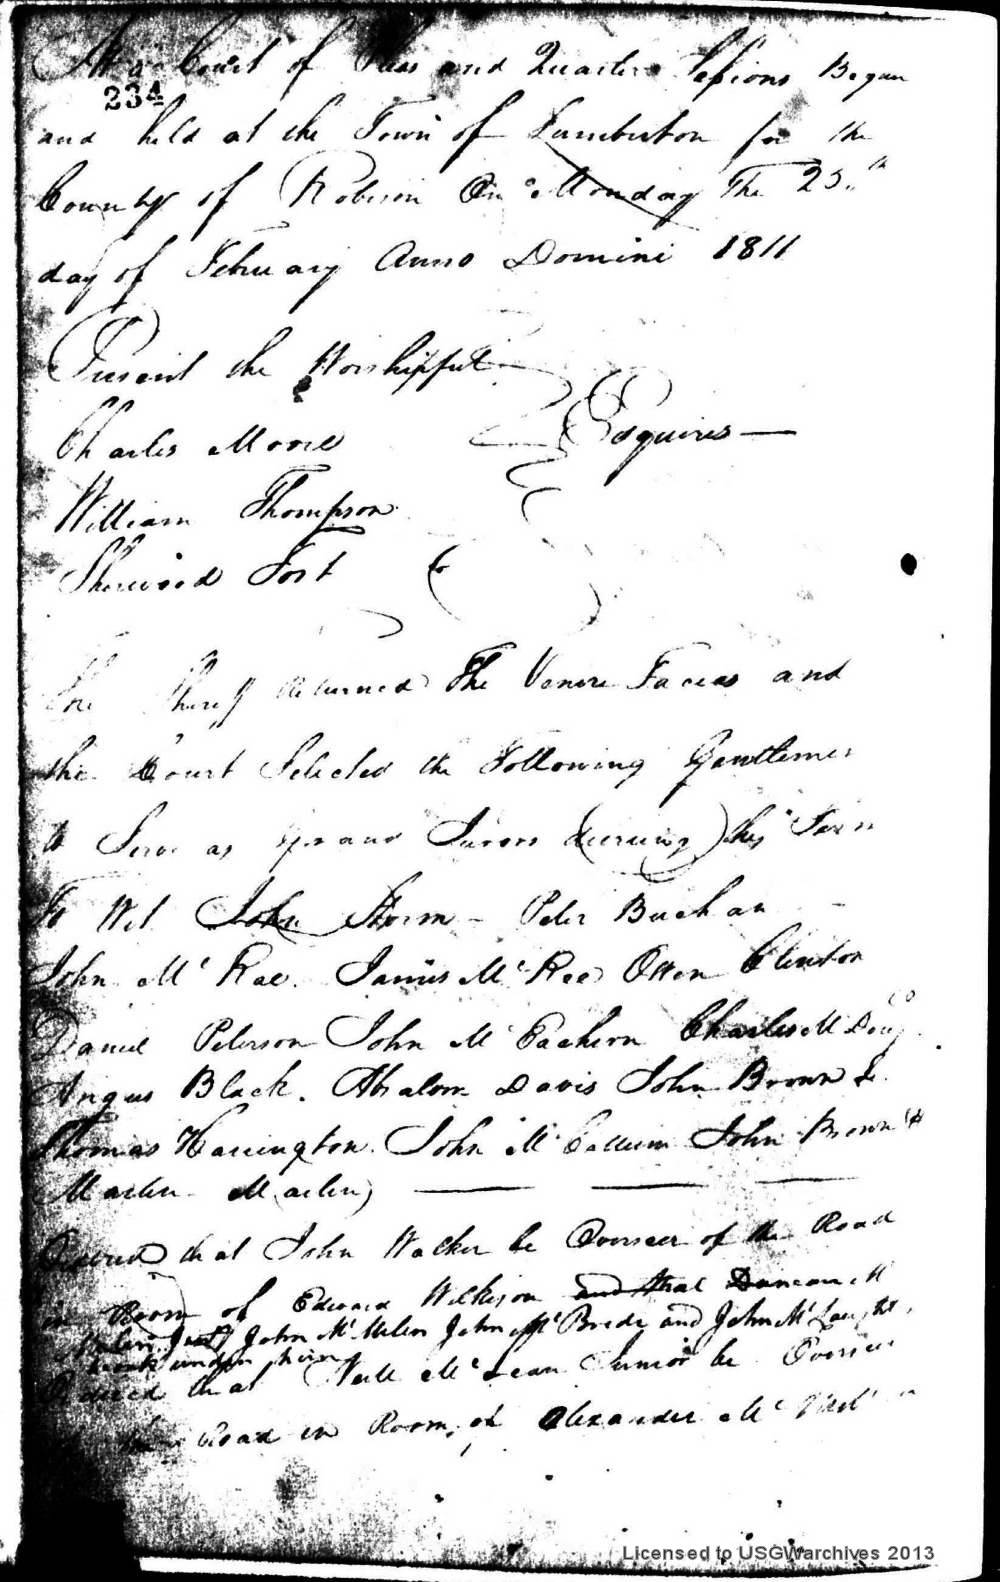 At a Court of Pleas and Quarter Sessions Began
234
and held at the Town of Lumberton for the
County of Robeson On Monday The 25th
day of February Anno Domini 1811
Present the Worshipful
Charles Moore Esquires
William Thompson
Sherwood Fort
The Sheriff Returned The Venire Facias and
the Court Selected the Following Gentlemen
to Serve as Grand Jurors during this Term
To Wit John Storm - Peter Buchan
John Mc Rae. James Mc Ree Owen Clinton
Daniel Peterson John Mc Eachern Charles Mc
Angus Black. Absalom Davis John Brown
Thomas Harrington. John Mc Callum John Brown
Martin Martin
Ordered that John Walker be Overseer of the Road
in Room of Edward Wilkison and that Duncan Mc
John Mc Millan John Mc Bride and John Mc
work under him
Ordered that Neill Mc Lean Junior be Overseer
the Road in Room of Alexander Mc
Licensed to USGWarchives 2013